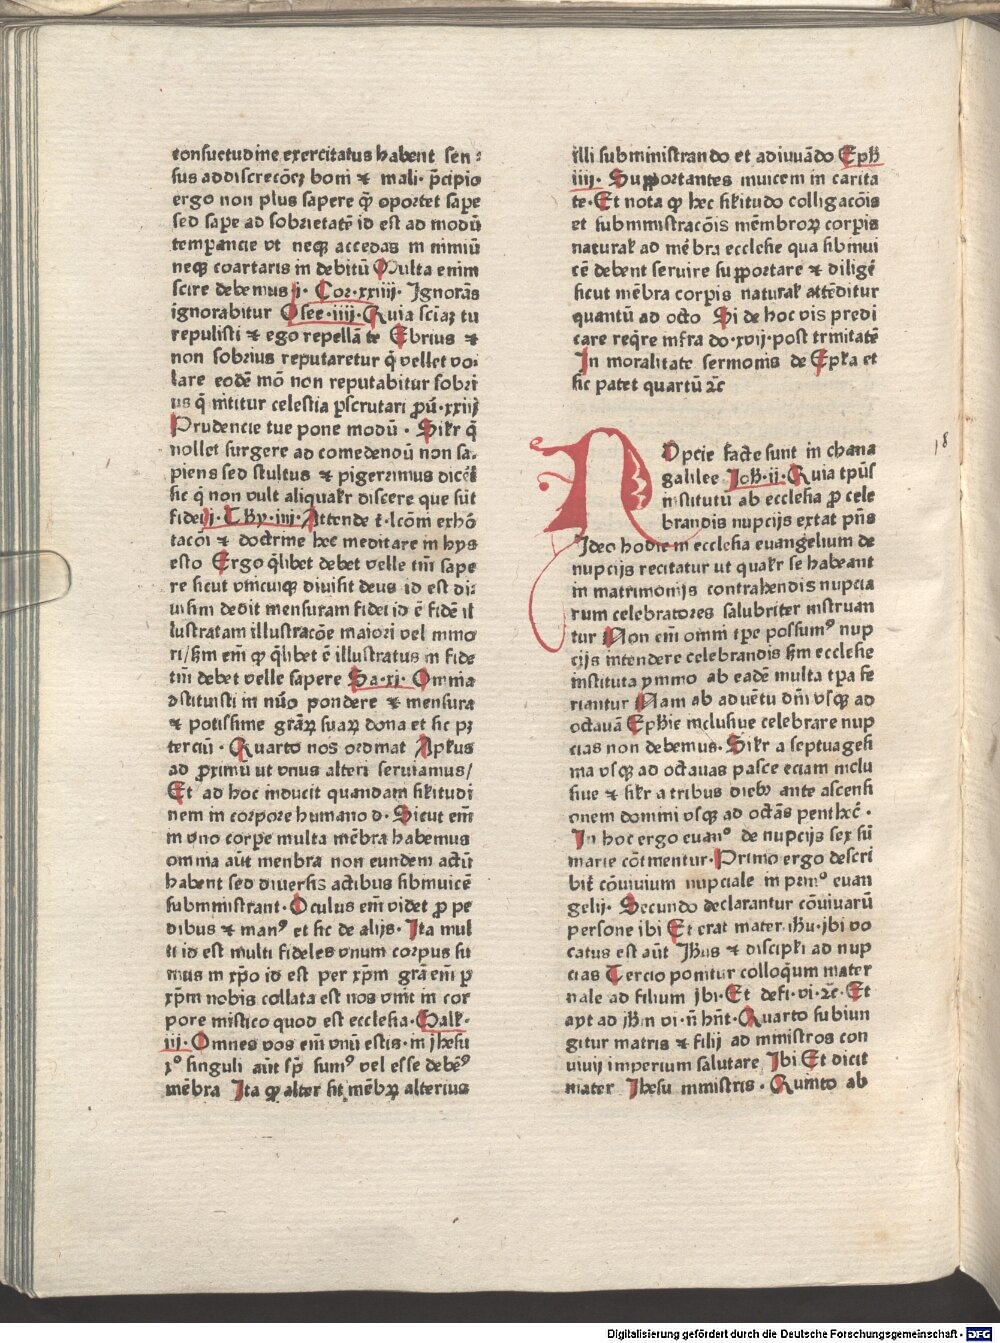 consuetudine exercitatus habent sen⸗
sus ad discrecōeꝫ boni ⁊ mali. p̄cipio
ergo non plus sapere ꝙ̄ oportet sape
sed sape ad sobrietatē id est ad modū
temꝑancie vt neqꝫ accedas in nimiū
neqꝫ coartaris in debitū Multa enim
scire debemus j. Cor.xxiiij. Ignorās
ignorabitur Osee.iiij. Quia sciaꝫ tu
repulisti ⁊ ego repellā te Ebrius ⁊
non sobrius reputaretur q̄ vellet vo⸗
lare eodē mō non reputabitur sobri
us q̄ nititur celestia ꝑscrutari ꝓū.xxiij
Prudencie tue pone modū. Silr q̄
nollet surgere ad comedenoū non sa⸗
piens sed stultus ⁊ pigerrimus dicet̄
sic q̄ non vult aliqualr discere que sūt
fidei j. Thy.iiij. Attende t̄. lcōni exhō
tacōi ⁊ doctrine hec meditare in hys
esto Ergo q̄libet debet velle tm̄ sape
re sicut vnicuiqꝫ diuisit deus id est di⸗
uisim dedit mensuram fidei id ē fidē il
lustratam illustracōe maiori vel mino
ri/ sm̄ em̄ ꝙ q̄libet ē illustratus in fide
tm̄ debet velle sapere Sa.xi. Omnia
ꝯstituisti in nūo pondere ⁊ mensura
⁊ potissime gr̄aꝝ suaꝝ dona et sic pꝫ
terciū. Quarto nos ordinat Apl̄us
ad ꝓximū ut vnus alteri seruiamus/
Et ad hoc inducit quandam sil̄itudi
nem in corpore humano d. Sicut em̄
in vno corpe multa mēbra habemus
omnia aūt menbra non eundem actū
habent sed diuersis actibus sibinuicē
subministrant. Oculus em̄ videt ꝓ pe
dibus ⁊ manꝰ et sic de alijs. Ita mul
ti id est multi fideles vnum corpus su
mus in xp̄o id est per xp̄m gr̄a em̄ ꝑ
xp̄m nobis collata est nos vnit in cor
pore mistico quod est ecclesia. Gall.
iij. Omnes vos em̄ vnū estis. in jhesu
xͦ singuli aūt sp̄ sumꝰ vel esse debēꝰ
mēbra Ita ꝙ alter sit mēbꝝ alterius
illi subministrando et adiuuādo Eph
iiij. Supportantes inuicem in carita
te. Et nota ꝙ hec sil̄itudo colligacōis
et subministracōis mēmbroꝝ corpis
natural̄ ad mēbra ecclesie qua sibinui
cē debent seruire supportare ⁊ diligē
sicut mēbra corpis natural̄ attēditur
quantū ad octo Si de hoc vis predi
care req̄re infra do.xvij. post trinitatē
In moralitate sermonis de Ep̄la et
sic patet quartū ⁊c̄
18
NOpcie facte sunt in chana
galilee Joh.ij. Quia tp̄us
institutū ab ecclesia ꝓ cele
brandis nupcijs extat p̄ns
Ideo hodie in ecclesia euangelium de
nupcijs recitatur ut qualr se habeant
in matrimonijs contrahendis nupcia
rum celebratores salubriter instruan
tur Non em̄ omni tp̄e possumꝰ nup
cijs intendere celebrandis sm̄ ecclesie
instituta ymmo ab eadē multa tp̄a fe
riantur Nam ab aduētu dn̄i vsqꝫ ad
octauā Ephie inclusiue celebrare nup
cias non debemus. Silr a septuagesi
ma vsqꝫ ad octauas pasce eciam inclu
siue ⁊ silr a tribus dieb⁹ ante ascensi
onem domini vsqꝫ ad octās penthec̄.
In hoc ergo euanͦ de nupcijs sex sū
marie cōtinentur. Primo ergo descri
bit̄ cōuiuium nupciale in primͦ euan
gelij. Secundo declarantur cōuiuarū
persōne ibi Et erat mater ihū. ibi vo
catus est aūt Ihūs ⁊ discipli ad nup
cias Tercio ponitur colloq̄um mater
nale ad filium ibi. Et defi.vi. ⁊c̄. Et
ayt ad ih̄m vi. n̄ hn̄t. Quarto subiun
gitur matris ⁊ filij ad ministros con
viuij imperium salutare Ibi Et dicit
mater Ihesu ministris. Quinto ab